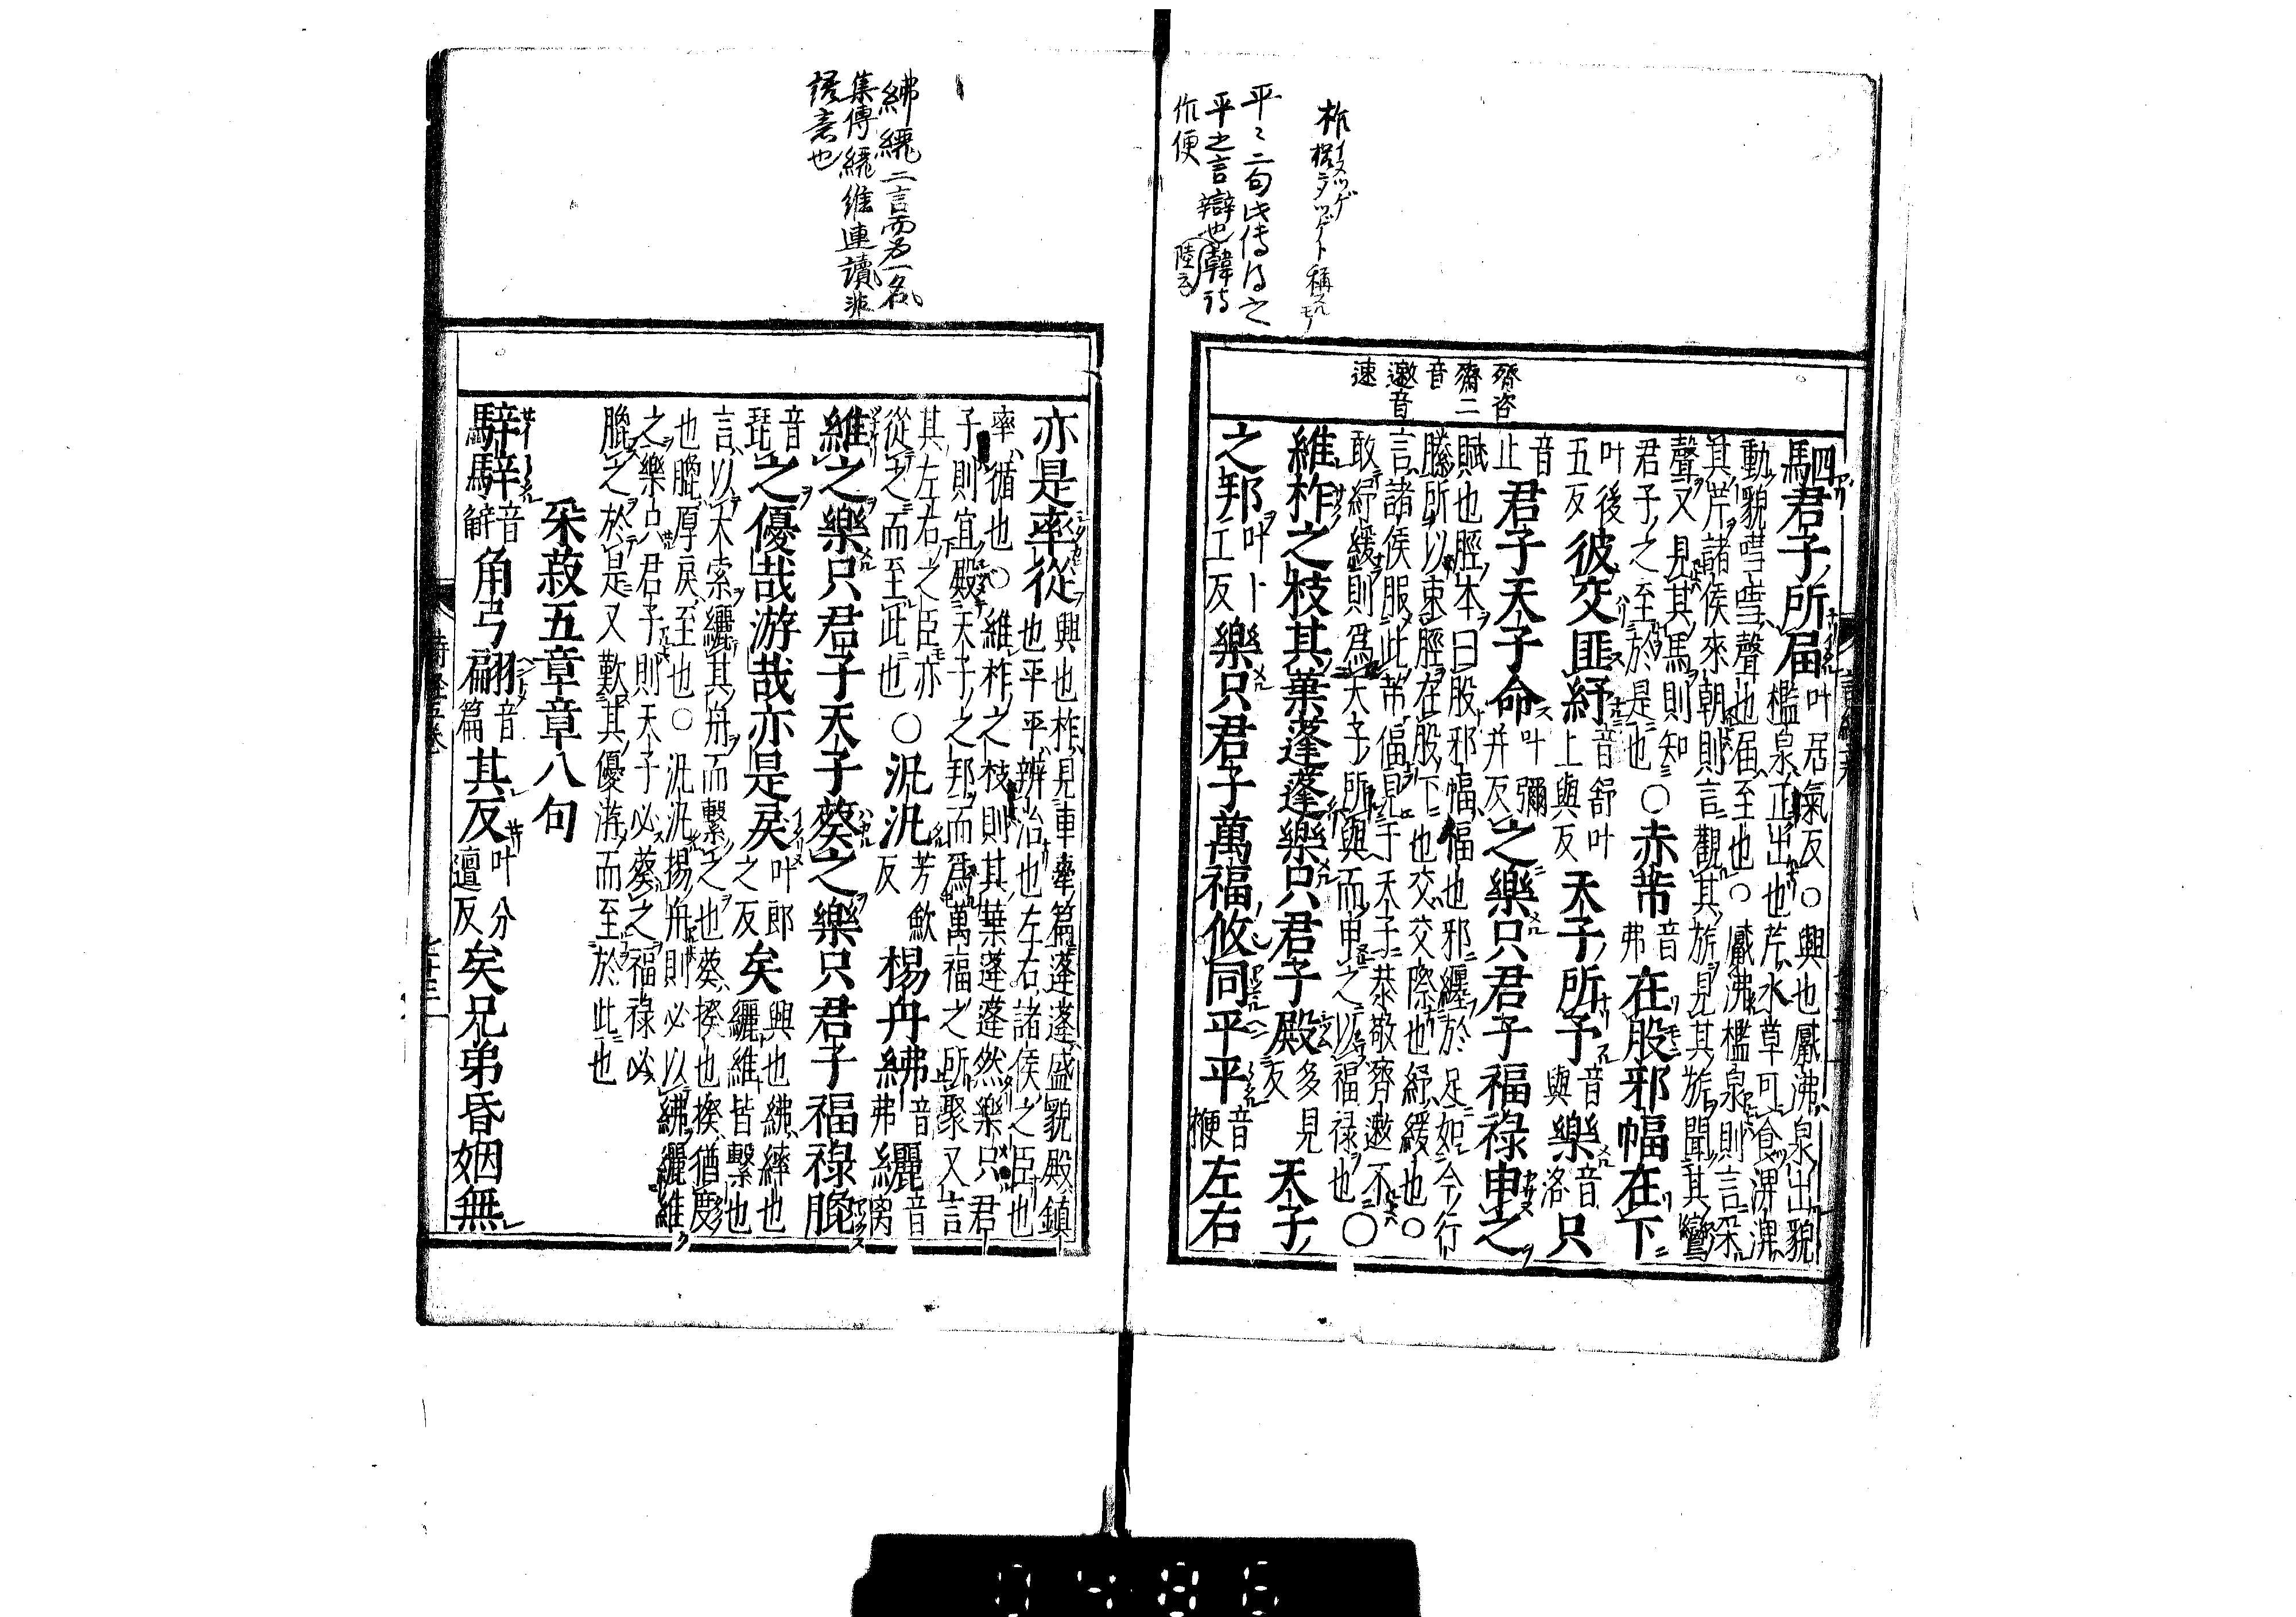 柞
平〻二句
平之言辯也韓詩
作便
陸云
齊咨
齋二
音
邀音
速
駟君子所屆叶居氣反○興也觱沸泉出貌
檻泉正出也芹水草可食淠淠
動貌嘒嘒聲也屆至也○觱沸檻泉則言采
其芹諸侯來朝則言觀其旂見其旂聞其鸞
聲又見其馬則知
君子之至於是也○赤芾音弗在股邪幅在下
叶後五反彼交匪紓音舒叶上與反天子所予音與樂音洛只
音止君子天子命叶彌并反之樂只君子福祿申之
賦也脛本曰股邪幅偪也邪纏於足如今行
縢所以束脛在股下也交交際也紓緩也○
言諸侯服此芾偪見于天子恭敬齊邀不
敢紓緩則爲天子所與而申之以福祿也○
維柞之枝其葉蓬蓬樂只君子殿多見反天子
之邦叶卜工反樂只君子萬福攸同平平音楩左右
紼纚二言而爲一名
集傳纚維連讀非
語意也
亦是率從興也柞見車舝篇蓬蓬盛貌殿鎮
也平平辨治也左右諸侯之臣也
率循也○維柞之枝則其葉蓬蓬然樂只君
子則宜殿天子之邦而爲萬福之所聚又言
其左右之臣亦
從之而至此也○汎汎芳歛反楊舟紼音弗纚音离
維之樂只君子天子葵之樂只君子福祿膍
音琵之優哉游哉亦是戾叶郎之反矣興也紼繂也
纚維皆繫也
言以大索纚其舟而繫之也葵揆也揆猶度
也膍厚戾至也○汎汎楊舟則必以紼纚維
之樂只君子則天子必葵之福祿必
膍之於是又歎其優游而至於此也
采菽五章章八句
騂騂音觪角弓翩音篇其反叶分邅反矣兄弟昏姻無
詩經五卷